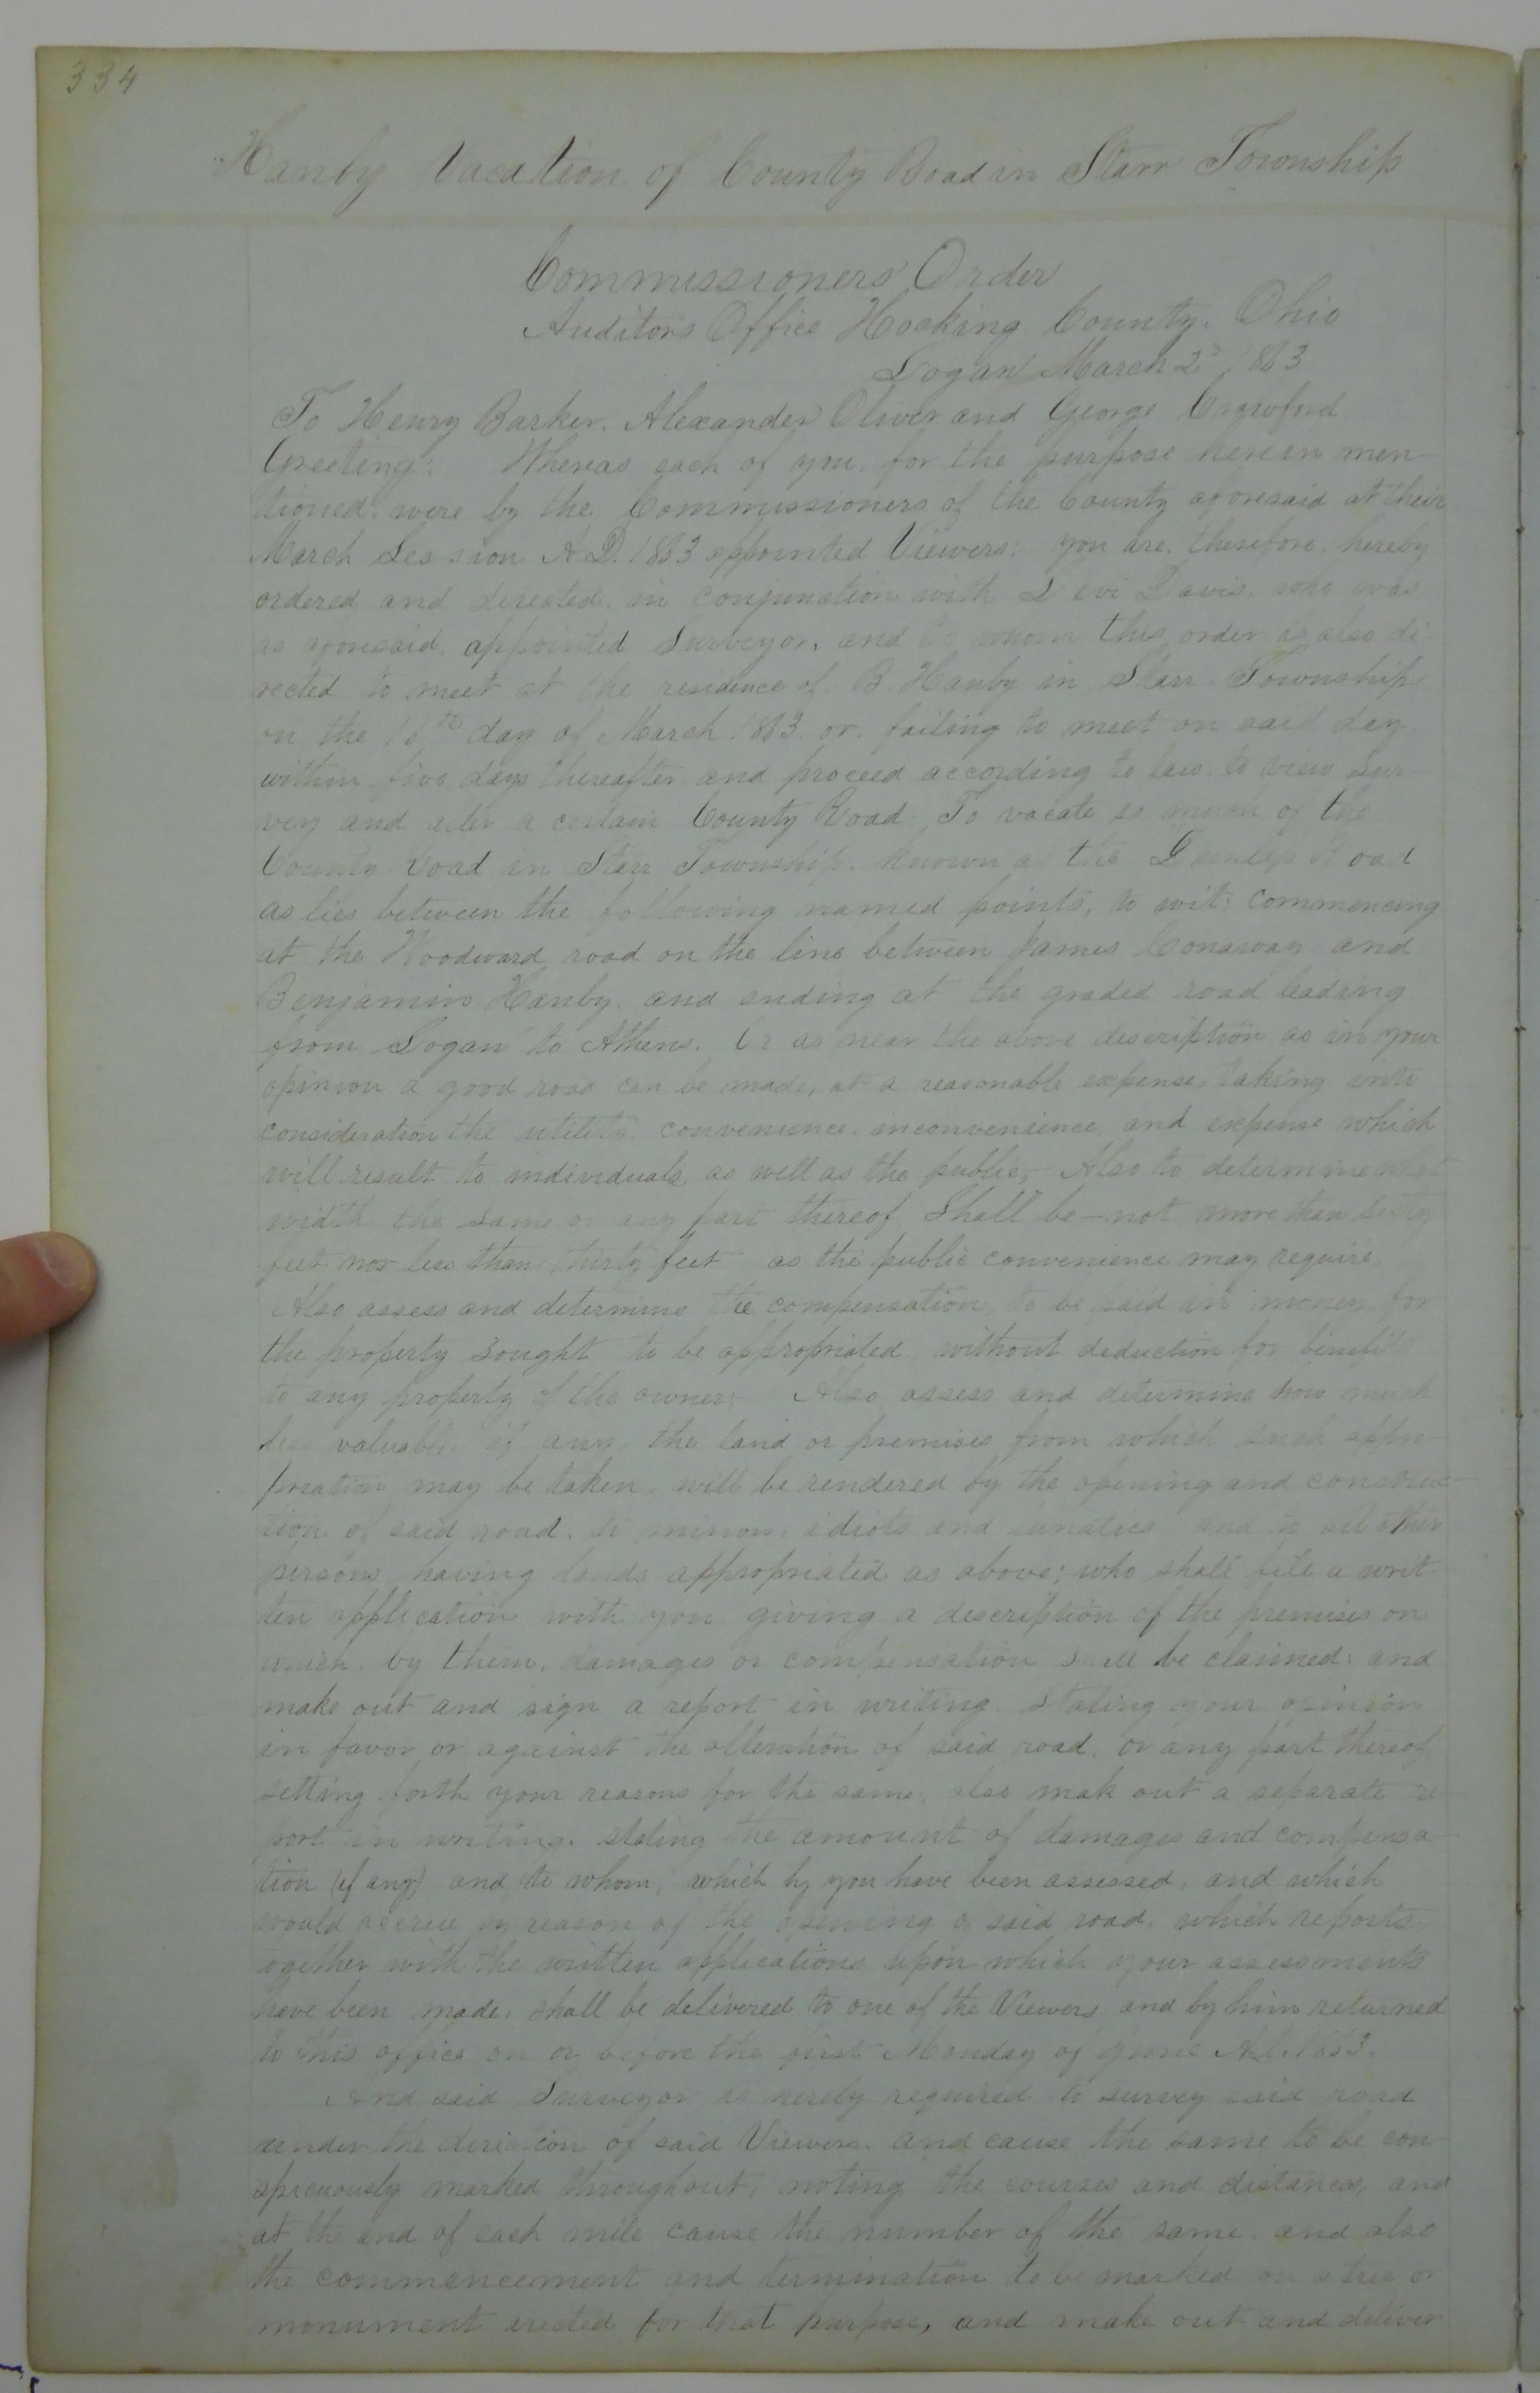 334
Hanby Vacation of County Road in Starr Township
Commissioners Order
Auditors Office Hocking County. Ohio
Logan March 2d 1863
To Henry Barker. Alexander Oliver and George Crawford
Greeting: Whereas each of you. for the purpose herein men-
tioned. were by the Commissioners of the County aforesaid at their
March Session A.D. 1863 appointed Viewers: you are. therefore. hereby
ordered and directed. in conjunction with Levi Davis. who was
as aforesaid. appointed Surveyor. and to whom this order is also di-
rected to meet at the residence of B. Hanby in Starr Township
on the 16th day of March 1863. or. failing to meet on said day
within five days thereafter and proceed according to law to view sur-
vey and alter a certain County Road. To vacate so much of the
County road in Starr Township. known as the Dunlap Road
as lies between the following named points, to wit: commencing
at the Woodward road on the line between James Conaway and
Benjamin Hanby. and ending at the graded road leading
from Logan to Athens. Or as near the above description as in your
opinion a good road can be made, at a reasonable expense, taking into
consideration the utility convenience. inconvenience and expense which
will result to individuals as well as the public; Also to determine what
width the same or any part thereof Shall be—not more than sixty
feet nor less than thirty feet as the public convenience may require.
Also assess and determine the compensation to be paid in money for
the property sought to be appropriated without deduction for benefits
to any property of the owner; Also assess and determine how much
less valuable if any, the land or premises from which such appro-
priation may be taken will be rendered by the opening and construc-
tion of said road. to minors. idiots and lunatics and to all other
persons having lands appropriated as above; who shall file a writ-
ten application with you giving a description of the premises on
which. by them. damages or compensation shall be claimed: and
make out and sign a report in writing. Stating your opinion
in favor or against the alteration of said road, or any part thereof
setting forth your reasons for the same. also mak out a separate re-
port in writing. stating the amount of damages and compensa-
tion (if any) and to whom, which by you have been assessed, and which
would accrue by reason of the opening of said road. which reports
together with the written applications upon which your assessments
have been made. shall be delivered to one of the Viewers and by him returned
to this office on or before the first Monday of June A.D. 1863.
And said Surveyor is herely required to survey said road
under the direction of said Viewers. and cause the same to be con-
spicuously marked throughout, noting the courses and distances, and
at the end of each mile cause the number of the same. and also
the commencement and termination to be marked on a tree or
monument erected for that purpose, and make out and deliver